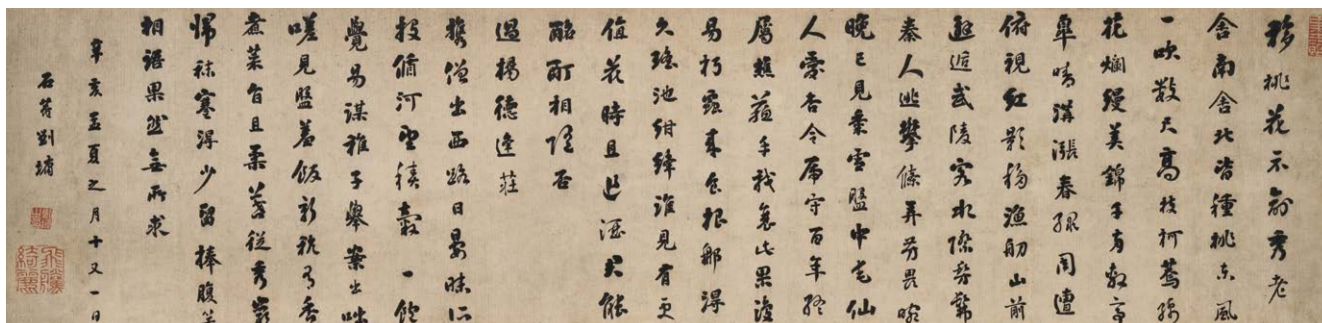 移桃花示俞秀老
舍南舍北皆種桃東風
一吹數尺高枝柯蔫綿
花爛縵美錦千兩敷亭
皋晴溝漲春綠周遭
俯視紅影移漁舠山前
邂逅武陵客水際髣髴
秦人逃攀條弄芳畏晼
晚已見黍雪盤中毛仙
人愛杏令虎守百年終
屬樵蘇手我衰此果復
易朽蟲來食根那得
久瑤池紺絳誰見有更
值花時且追酒君能
酩酊相隨否
過楊德逢莊
攜僧出西路日晏昧所
投循河望積穀一飽
覺易謀稚子舉案出咄
嗟見盤羞飯新秔有香
煮菜旨且柔暮從秀巖
歸秣蹇得少留捧腹笑
相語果然無所求
辛亥孟夏之月十又一日
石菴劉墉